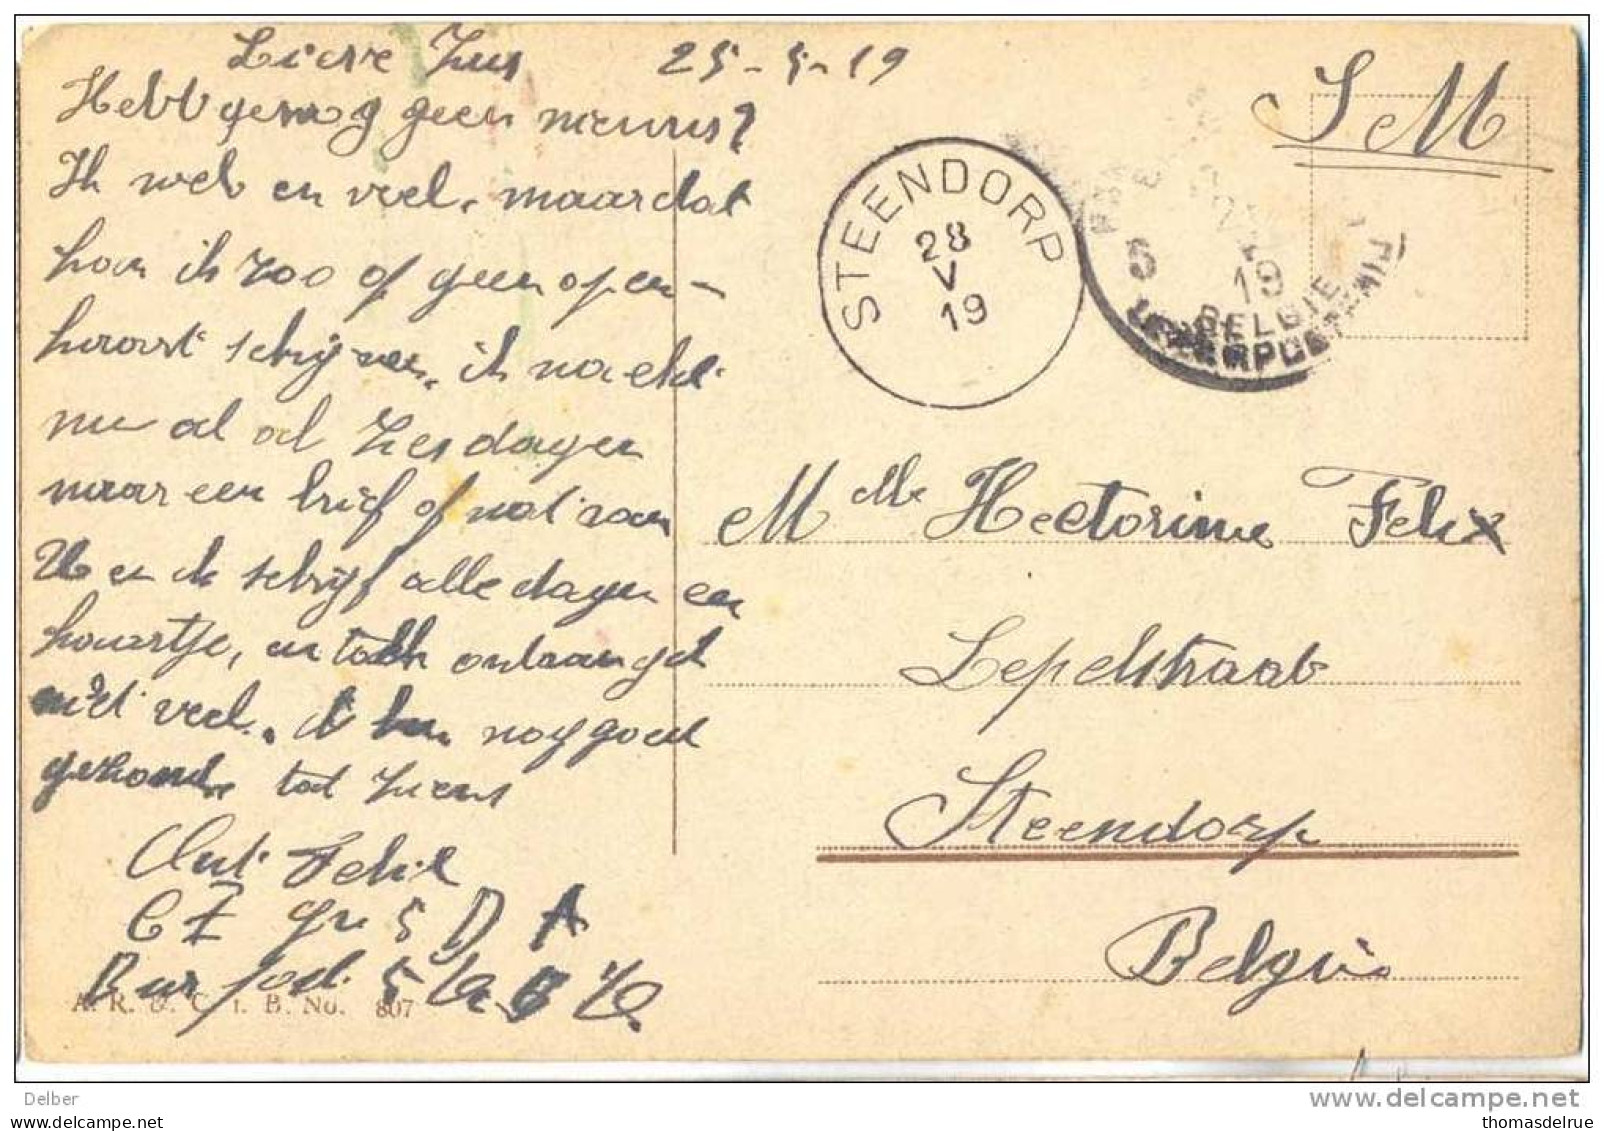 Lieve Zus 25-5-19
Hebt ge nog geen nieuws?
Ik wel en veel. maar dat
kan ik zoo of geen open-
kaart schrijven, ik
nu al al zes dagen
naar een brief of wat van
U en ik schrijf alle dagen een
kaartje, en toch ontvang ik
niet veel. ik ben nog goed
gezond. tot ziens
Felix
C Z 5 D A
5
A. R. & C. i. B. No. 807
S M
STEENDORP
28
V
19
5
19
BELGIE
Melle Hectorine Felix
Lepelstraat
Steendorp
Belgie
Delber
delcampe.net
thomasdelrue